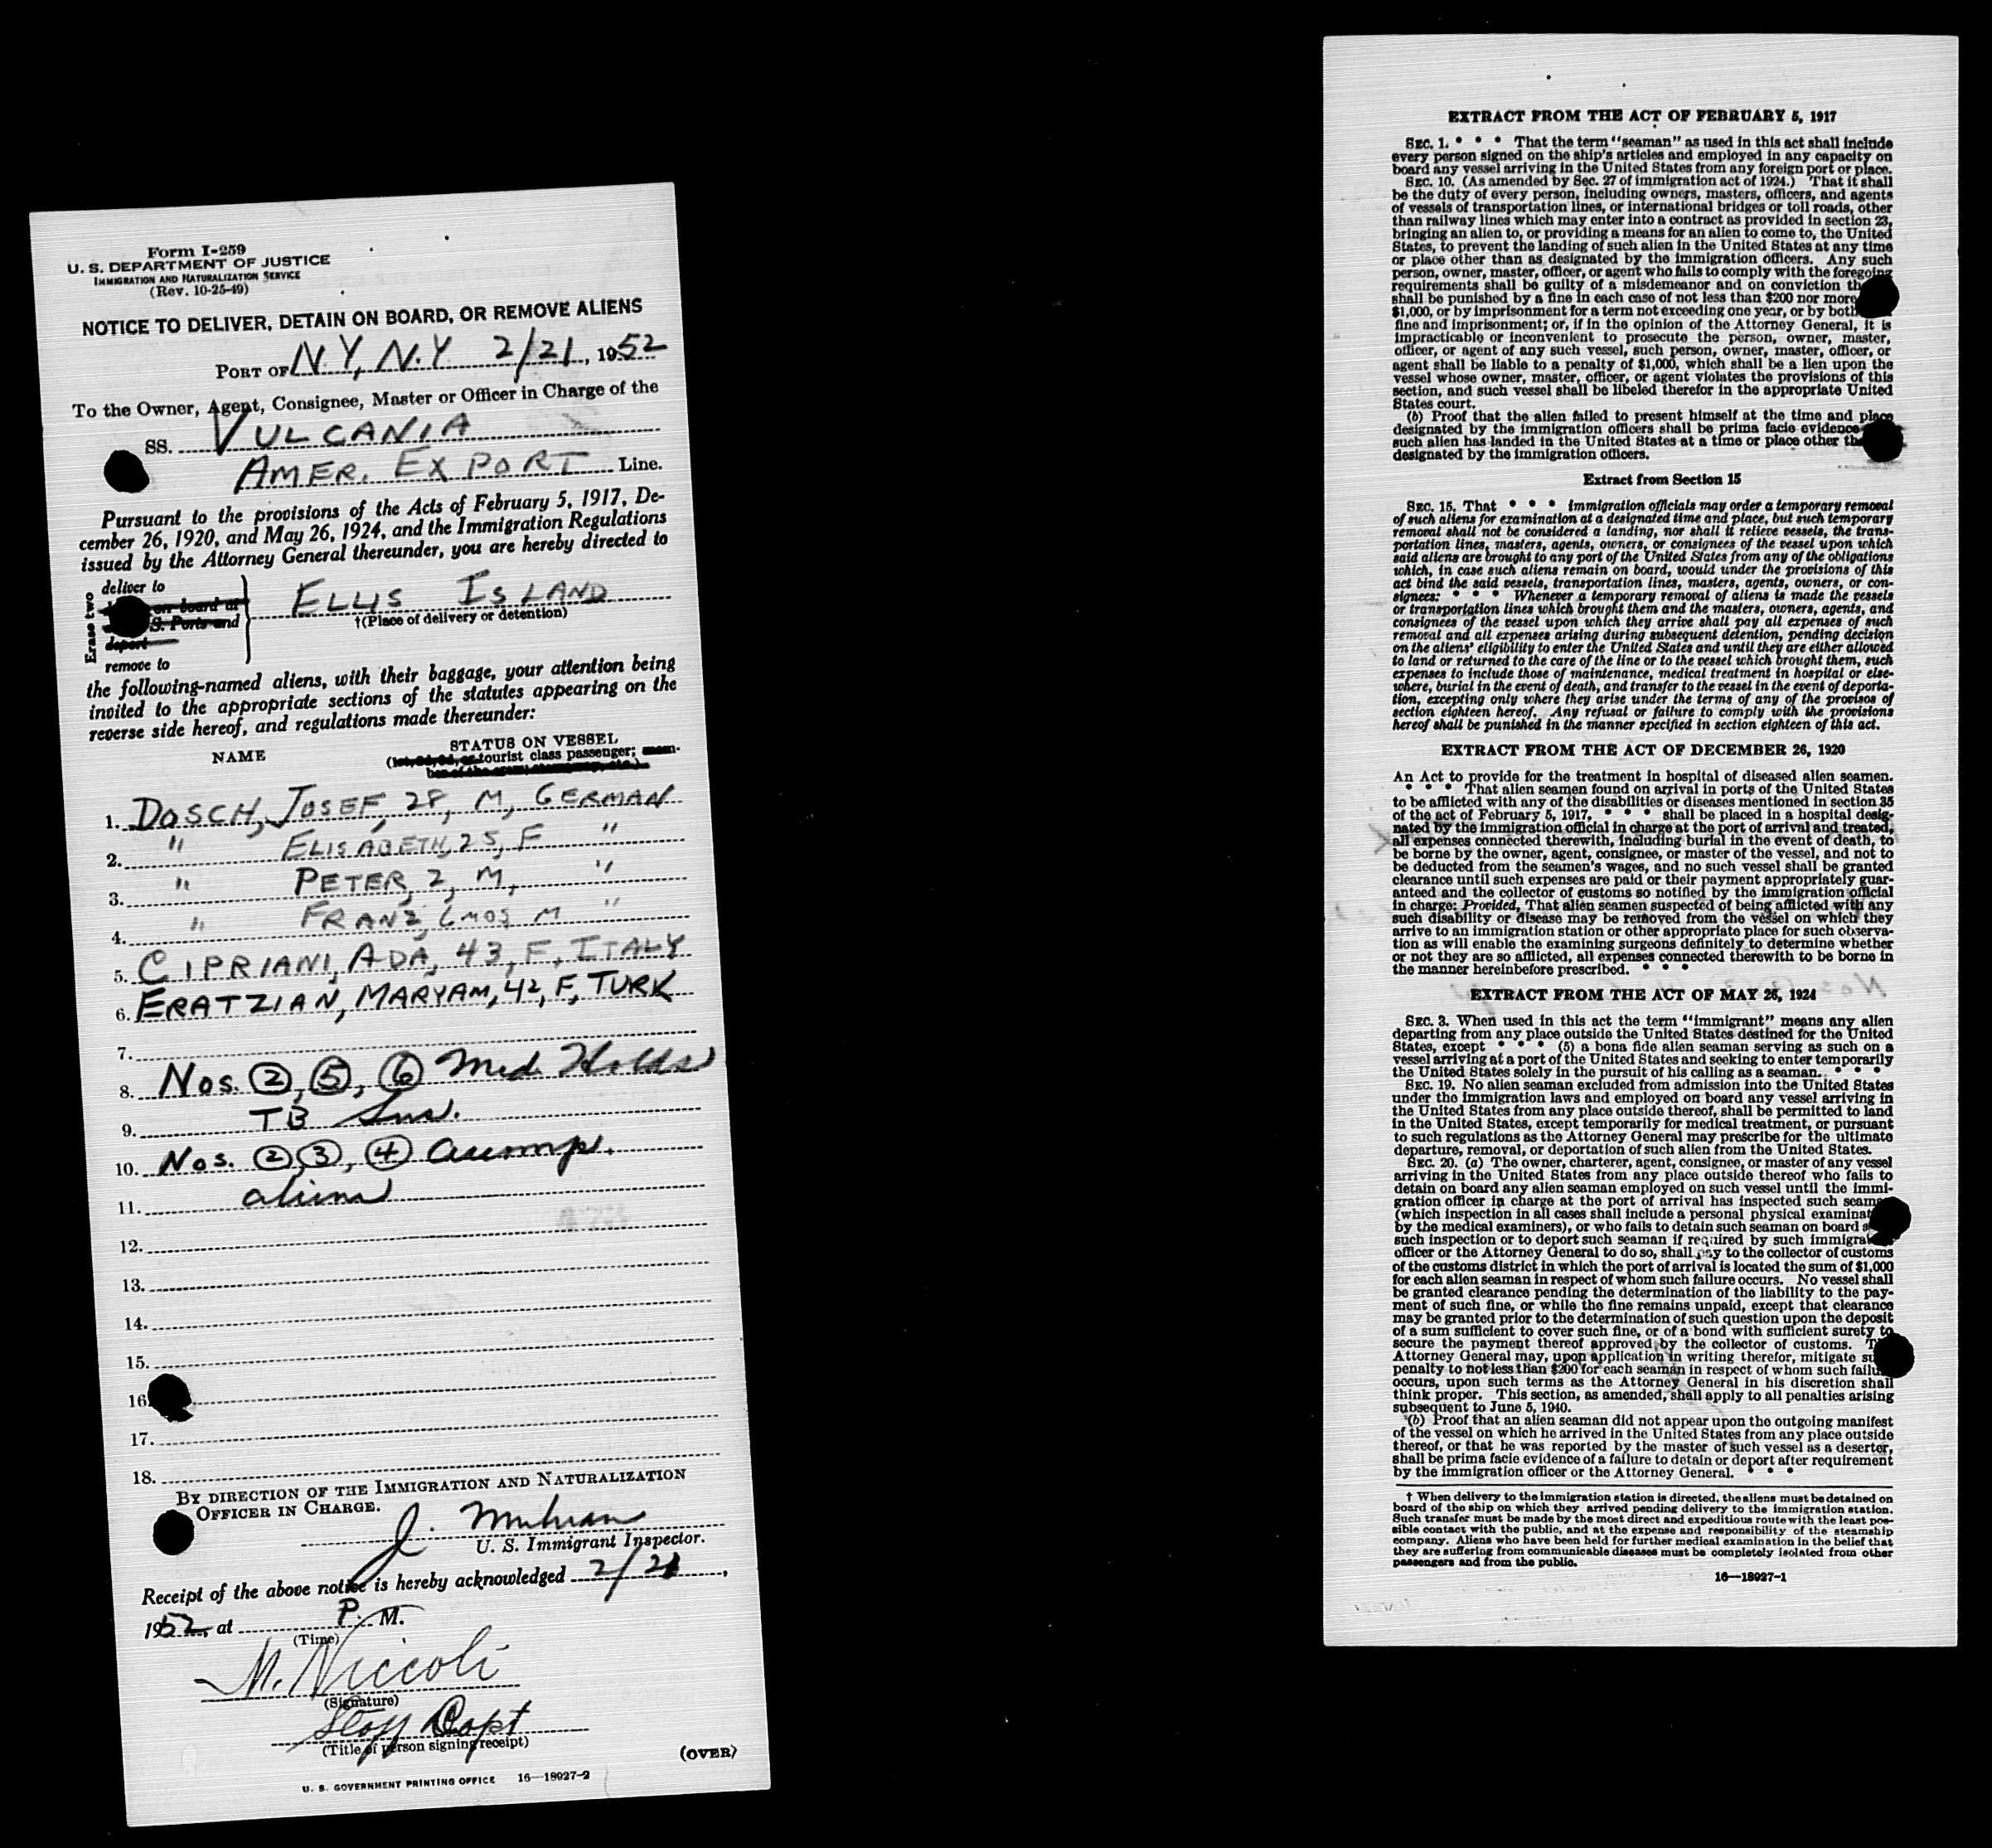 Form I-259
U. S. DEPARTMENT OF JUSTICE
IMMIGRATION AND NATURALIZATION SERVICE
(Rev. 10-25-49)
NOTICE TO DELIVER, DETAIN ON BOARD, OR REMOVE ALIENS
PORT OF N.Y, N.Y 2/21, 1952
To the Owner, Agent, Consignee, Master or Officer in Charge of the
SS. VULCANIA
AMER. EXPORT Line.
Pursuant to the provisions of the Acts of February 5, 1917, De-
cember 26, 1920, and May 26, 1924, and the Immigration Regulations
issued by the Attorney General thereunder, you are hereby directed to
Erase two
deliver to
on board at
S. Ports and
deport
remove to
ELLIS ISLAND
†(Place of delivery or detention)
the following-named aliens, with their baggage, your attention being
invited to the appropriate sections of the statutes appearing on the
reverse side hereof, and regulations made thereunder:
NAME STATUS ON VESSEL
(1st, 2d, 3d, or tourist class passenger; mem-
ber of the crew, stowaway, etc.)
1. DOSCH, JOSEF, 28, M, GERMAN
2. " ELISABETH, 25, F "
3. " PETER, 2, M, "
4. " FRANZ, 6 mos, M "
5. CIPRIANI, ADA, 43, F, ITALY
6. ERATZIAN, MARYAM, 42, F, TURK
7.
8. Nos. 2, 5, 6 Med. Holds
9. TB
10. Nos. 2, 3, 4 accomp.
11. aliens
12.
13.
14.
15.
16.
17.
18.
BY DIRECTION OF THE IMMIGRATION AND NATURALIZATION
OFFICER IN CHARGE.
J.
U. S. Immigrant Inspector.
Receipt of the above notice is hereby acknowledged 2/21,
1952, at P. M.
(Time)
M. Niccoli
(Signature)
Staff Capt
(Title of person signing receipt)
(OVER)
U. S. GOVERNMENT PRINTING OFFICE 16—18027-2
EXTRACT FROM THE ACT OF FEBRUARY 5, 1917
SEC. 1. * * * That the term "seaman" as used in this act shall include
every person signed on the ship's articles and employed in any capacity on
board any vessel arriving in the United States from any foreign port or place.
SEC. 10. (As amended by Sec. 27 of immigration act of 1924.) That it shall
be the duty of every person, including owners, masters, officers, and agents
of vessels of transportation lines, or international bridges or toll roads, other
than railway lines which may enter into a contract as provided in section 23,
bringing an alien to, or providing a means for an alien to come to, the United
States, to prevent the landing of such alien in the United States at any time
or place other than as designated by the immigration officers. Any such
person, owner, master, officer, or agent who fails to comply with the foregoing
requirements shall be guilty of a misdemeanor and on conviction th
shall be punished by a fine in each case of not less than $200 nor more
$1,000, or by imprisonment for a term not exceeding one year, or by both
fine and imprisonment; or, if in the opinion of the Attorney General, it is
impracticable or inconvenient to prosecute the person, owner, master,
officer, or agent of any such vessel, such person, owner, master, officer, or
agent shall be liable to a penalty of $1,000, which shall be a lien upon the
vessel whose owner, master, officer, or agent violates the provisions of this
section, and such vessel shall be libeled therefor in the appropriate United
States court.
(b) Proof that the alien failed to present himself at the time and place
designated by the immigration officers shall be prima facie evidence
such alien has landed in the United States at a time or place other th
designated by the immigration officers.
Extract from Section 15
SEC. 15. That * * * immigration officials may order a temporary removal
of such aliens for examination at a designated time and place, but such temporary
removal shall not be considered a landing, nor shall it relieve vessels, the trans-
portation lines, masters, agents, owners, or consignees of the vessel upon which
said aliens are brought to any port of the United States from any of the obligations
which, in case such aliens remain on board, would under the provisions of this
act bind the said vessels, transportation lines, masters, agents, owners, or con-
signees: * * * Whenever a temporary removal of aliens is made the vessels
or transportation lines which brought them and the masters, owners, agents, and
consignees of the vessel upon which they arrive shall pay all expenses of such
removal and all expenses arising during subsequent detention, pending decision
on the aliens' eligibility to enter the United States and until they are either allowed
to land or returned to the care of the line or to the vessel which brought them, such
expenses to include those of maintenance, medical treatment in hospital or else-
where, burial in the event of death, and transfer to the vessel in the event of deporta-
tion, excepting only where they arise under the terms of any of the provisos of
section eighteen hereof. Any refusal or failure to comply with the provisions
hereof shall be punished in the manner specified in section eighteen of this act.
EXTRACT FROM THE ACT OF DECEMBER 26, 1920
An Act to provide for the treatment in hospital of diseased alien seamen.
* * * That alien seamen found on arrival in ports of the United States
to be afflicted with any of the disabilities or diseases mentioned in section 35
of the act of February 5, 1917, * * * shall be placed in a hospital desig-
nated by the immigration official in charge at the port of arrival and treated,
all expenses connected therewith, including burial in the event of death, to
be borne by the owner, agent, consignee, or master of the vessel, and not to
be deducted from the seamen's wages, and no such vessel shall be granted
clearance until such expenses are paid or their payment appropriately guar-
anteed and the collector of customs so notified by the immigration official
in charge: Provided, That alien seamen suspected of being afflicted with any
such disability or disease may be removed from the vessel on which they
arrive to an immigration station or other appropriate place for such observa-
tion as will enable the examining surgeons definitely to determine whether
or not they are so afflicted, all expenses connected therewith to be borne in
the manner hereinbefore prescribed. * * *
EXTRACT FROM THE ACT OF MAY 26, 1924
SEC. 3. When used in this act the term "immigrant" means any alien
departing from any place outside the United States destined for the United
States, except * * * (5) a bona fide alien seaman serving as such on a
vessel arriving at a port of the United States and seeking to enter temporarily
the United States solely in the pursuit of his calling as a seaman. * * *
SEC. 19. No alien seaman excluded from admission into the United States
under the immigration laws and employed on board any vessel arriving in
the United States from any place outside thereof, shall be permitted to land
in the United States, except temporarily for medical treatment, or pursuant
to such regulations as the Attorney General may prescribe for the ultimate
departure, removal, or deportation of such alien from the United States.
SEC. 20. (a) The owner, charterer, agent, consignee, or master of any vessel
arriving in the United States from any place outside thereof who fails to
detain on board any alien seaman employed on such vessel until the immi-
gration officer in charge at the port of arrival has inspected such seam
(which inspection in all cases shall include a personal physical examinat
by the medical examiners), or who fails to detain such seaman on board
such inspection or to deport such seaman if required by such immigra
officer or the Attorney General to do so, shall pay to the collector of customs
of the customs district in which the port of arrival is located the sum of $1,000
for each alien seaman in respect of whom such failure occurs. No vessel shall
be granted clearance pending the determination of the liability to the pay-
ment of such fine, or while the fine remains unpaid, except that clearance
may be granted prior to the determination of such question upon the deposit
of a sum sufficient to cover such fine, or of a bond with sufficient surety to
secure the payment thereof approved by the collector of customs. T
Attorney General may, upon application in writing therefor, mitigate su
penalty to not less than $200 for each seaman in respect of whom such failu
occurs, upon such terms as the Attorney General in his discretion shall
think proper. This section, as amended, shall apply to all penalties arising
subsequent to June 5, 1940.
(b) Proof that an alien seaman did not appear upon the outgoing manifest
of the vessel on which he arrived in the United States from any place outside
thereof, or that he was reported by the master of such vessel as a deserter,
shall be prima facie evidence of a failure to detain or deport after requirement
by the immigration officer or the Attorney General. * * *
† When delivery to the immigration station is directed, the aliens must be detained on
board of the ship on which they arrived pending delivery to the immigration station.
Such transfer must be made by the most direct and expeditious route with the least pos-
sible contact with the public, and at the expense and responsibility of the steamship
company. Aliens who have been held for further medical examination in the belief that
they are suffering from communicable diseases must be completely isolated from other
passengers and from the public.
16—18027-1